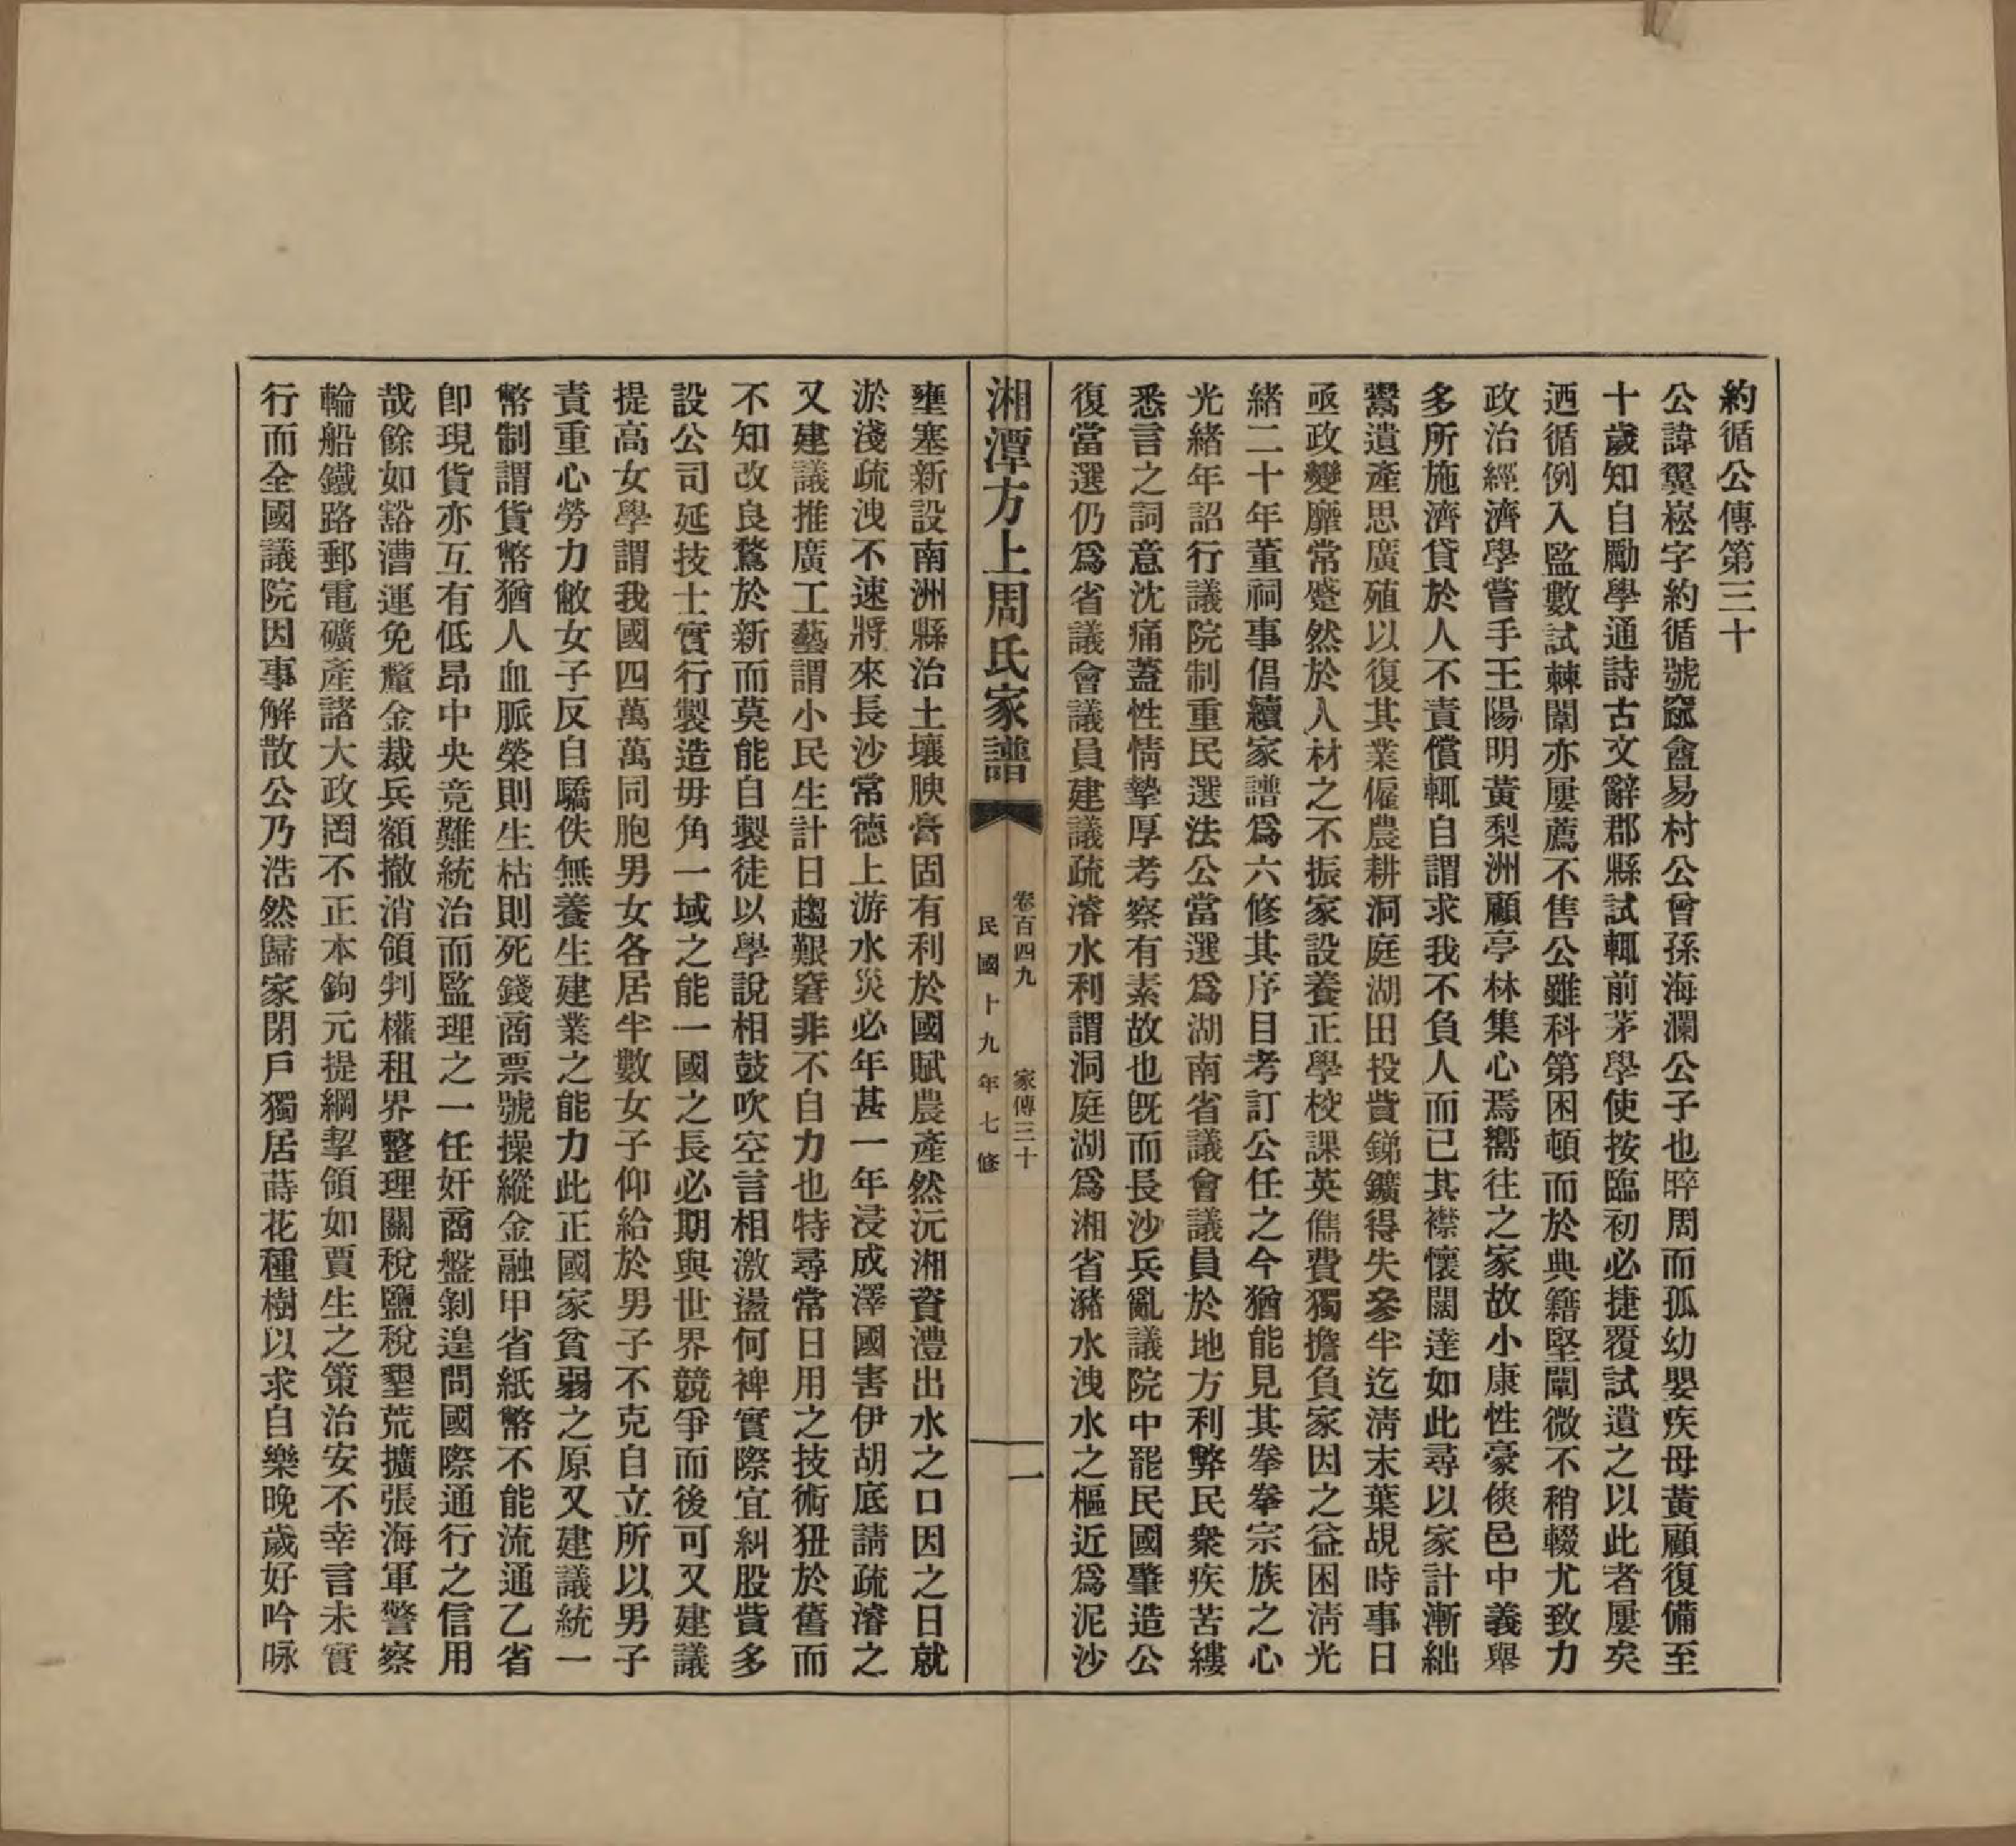 約循公傳第三十
公諱翼崧字約循號窳盦易村公曾孫海瀾公子也晬周而孤幼嬰疾母黃顧復備至
十歲知自勵學通詩古文辭郡縣試輒前茅學使按臨初必捷覆試遺之以此者屢矣
迺循例入監數試棘闈亦屢薦不售公雖科第困頓而於典籍堅闡微不稍輟尤致力
政治經濟學嘗手王陽明黃梨洲顧亭林集心焉嚮往之家故小康性豪俠邑中義舉
多所施濟貸於人不責償輒自謂求我不負人而已其襟懷闊達如此尋以家計漸絀
鬻遺產思廣殖以復其業僱農耕洞庭湖田投貲銻鑛得失參半迄淸末葉覘時事日
亟政變靡常蹙然於人材之不振家設養正學校課英儁費獨擔負家因之益困淸光
緒二十年董祠事倡續家譜爲六修其序目考訂公任之今猶能見其拳拳宗族之心
光緒年詔行議院制重民選法公當選爲湖南省議會議員於地方利弊民衆疾苦縷
悉言之詞意沈痛蓋性情摯厚考察有素故也旣而長沙兵亂議院中罷民國肇造公
復當選仍爲省議會議員建議疏濬水利謂洞庭湖爲湘省瀦水洩水之樞近爲泥沙
湘潭方上周氏家譜
卷百四九　家傳三十
民國十九年七修
一
壅塞新設南洲縣治土壤腴膏固有利於國賦農產然沅湘資澧出水之口因之日就
淤淺疏洩不速將來長沙常德上游水災必年甚一年浸成澤國害伊胡底請疏濬之
又建議推廣工藝謂小民生計日趨艱窘非不自力也特尋常日用之技術狃於舊而
不知改良鶩於新而莫能自製徒以學說相鼓吹空言相激盪何裨實際宜糾股貲多
設公司延技士實行製造毋角一域之能一國之長必期與世界競爭而後可又建議
提高女學謂我國四萬萬同胞男女各居半數女子仰給於男子不克自立所以男子
責重心勞力敝女子反自驕佚無養生建業之能力此正國家貧弱之原又建議統一
幣制謂貨幣猶人血脈榮則生枯則死錢商票號操縱金融甲省紙幣不能流通乙省
卽現貨亦互有低昂中央竟難統治而監理之一任奸商盤剝遑問國際通行之信用
哉餘如豁漕運免釐金裁兵額撤消領判權租界整理關稅鹽稅墾荒擴張海軍警察
輪船鐵路郵電礦產諸大政罔不正本鉤元提綱挈領如賈生之策治安不幸言未實
行而全國議院因事解散公乃浩然歸家閉戶獨居蒔花種樹以求自樂晚歲好吟咏